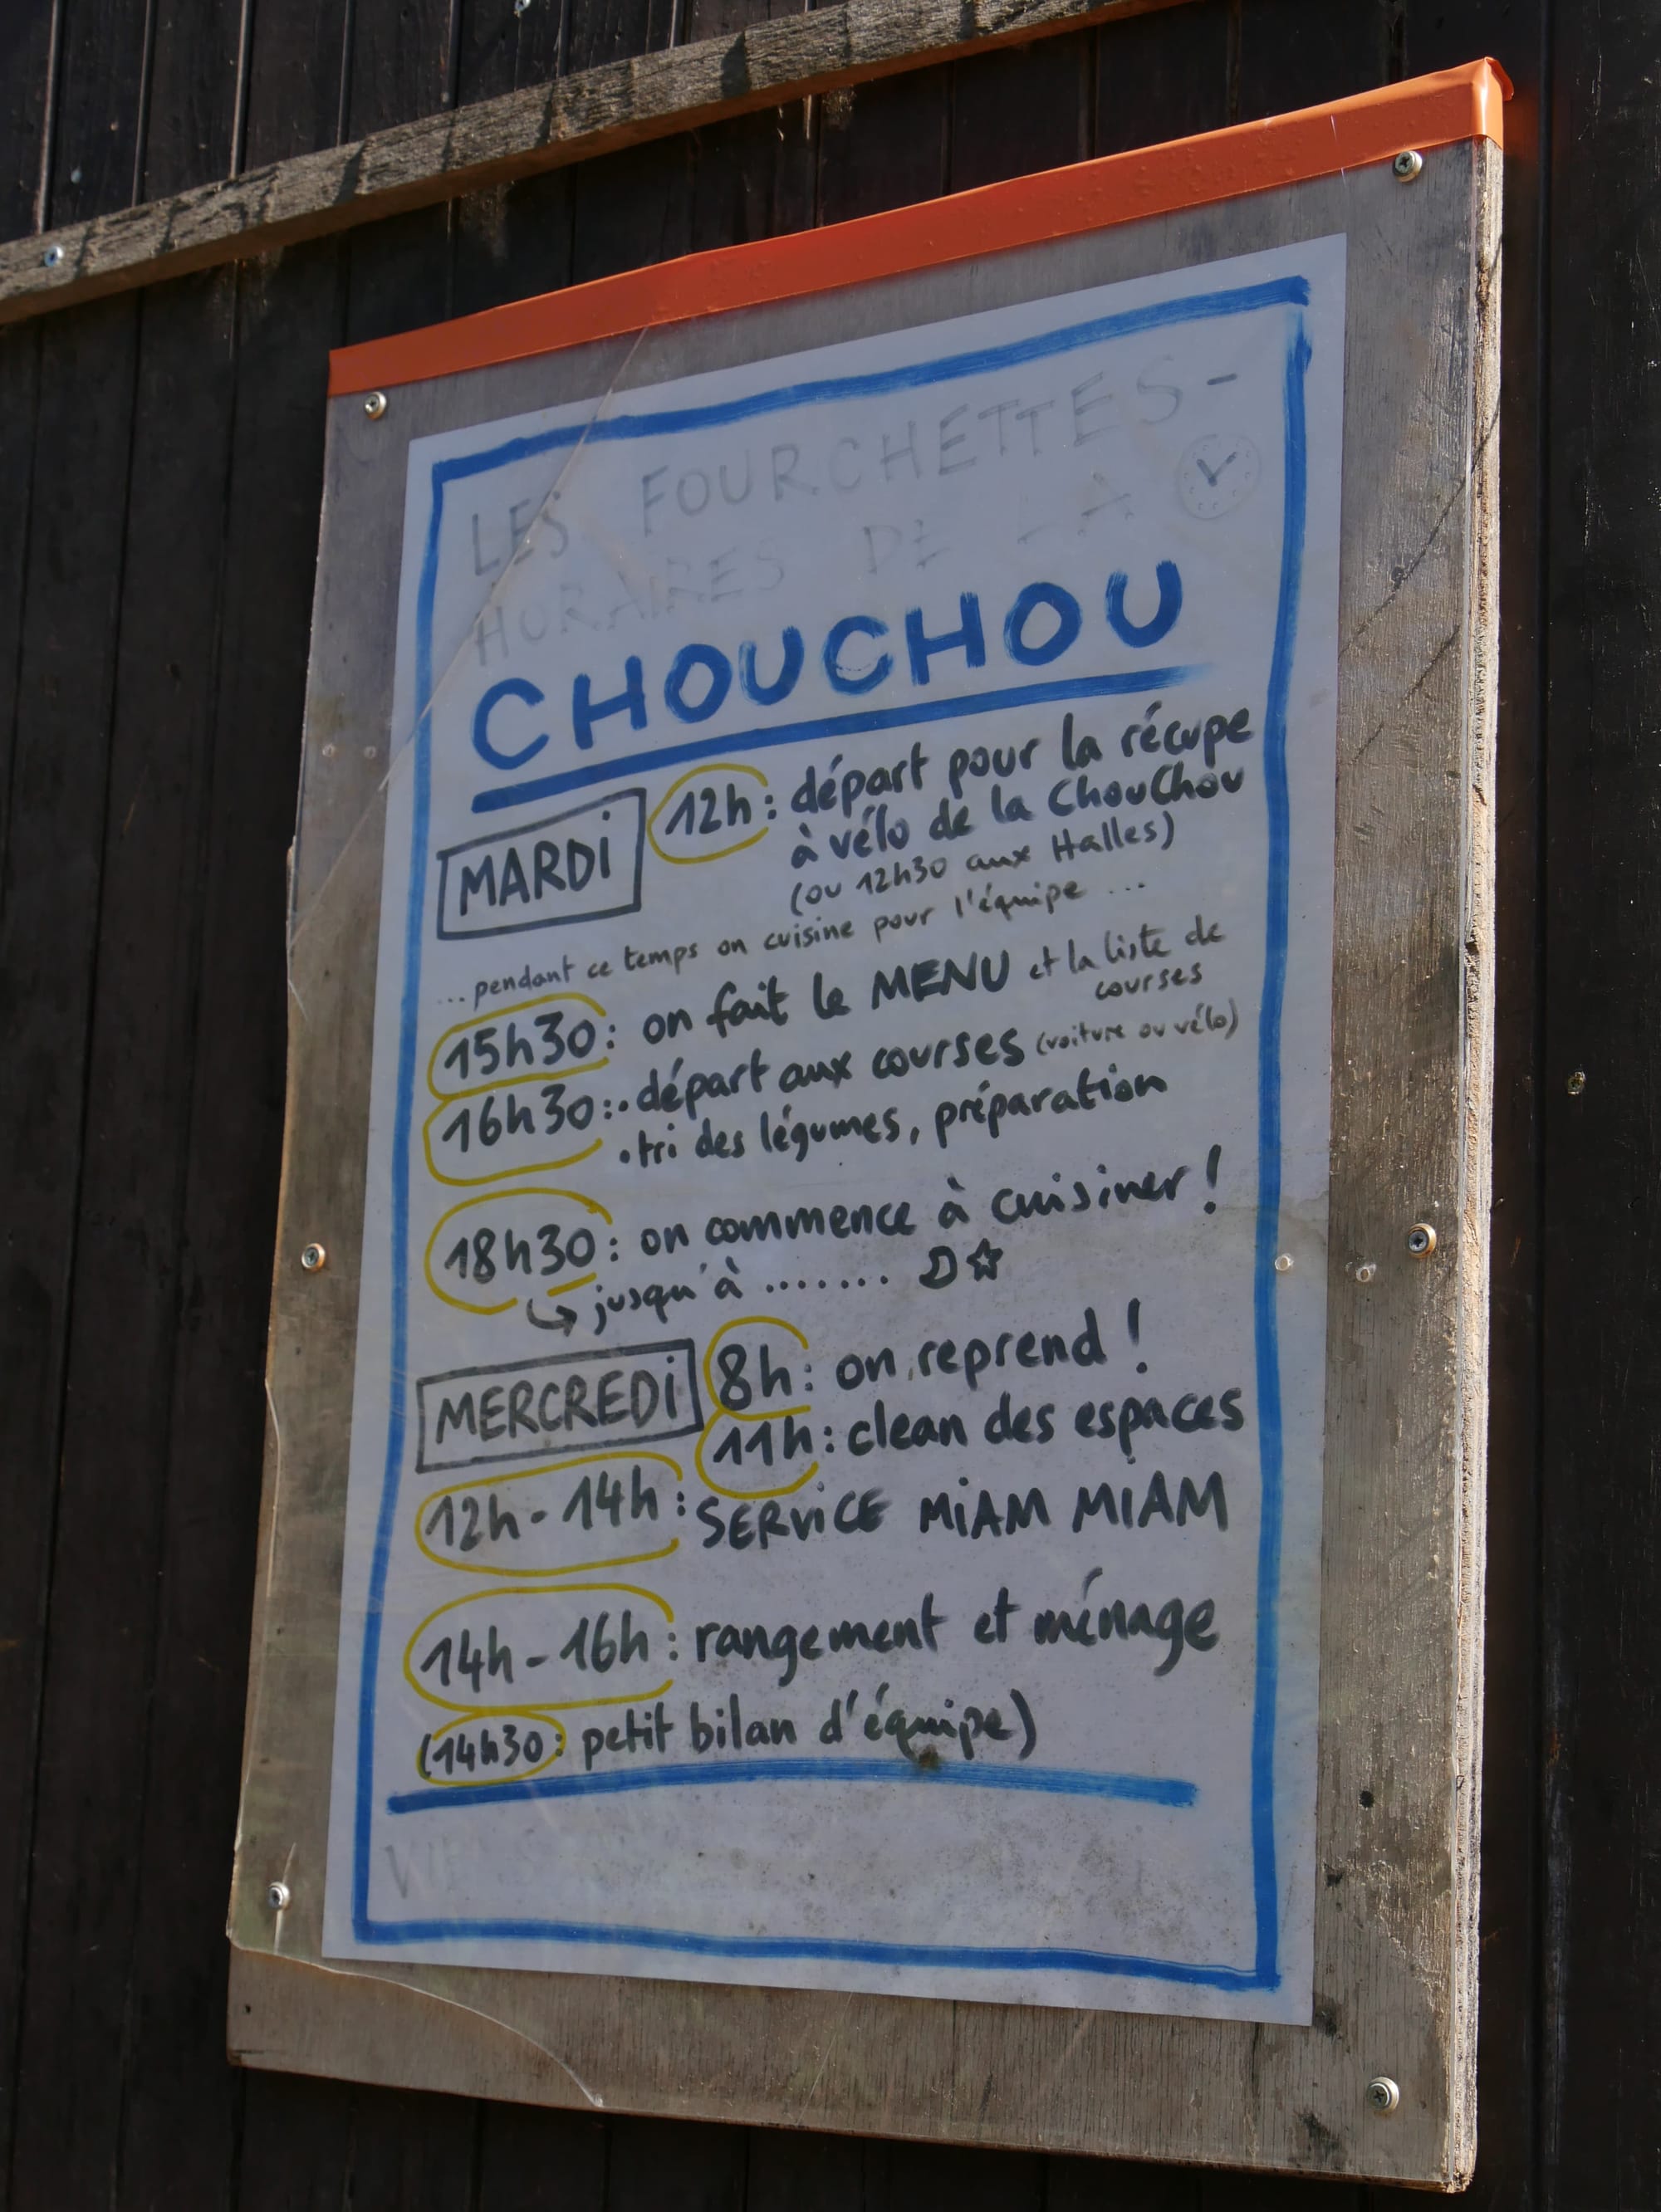 LES FOURCHETTES -
HORAIRES DE LA
CHOUCHOU
MARDi 12h : départ pour la récupe
à vélo de la ChouChou
(ou 12h30 aux Halles)
...pendant ce temps on cuisine pour l'équipe ...
15h30 : on fait le MENU et la liste de
courses
16h30 : . départ aux courses (voiture ou vélo)
. tri des légumes, préparation
18h30 : on commence à cuisiner !
↪ jusqu'à .......
MERCREDi 8h : on reprend !
11h : clean des espaces
12h - 14h : SERViCE MiAM MIAM
14h - 16h : rangement et ménage
(14h30 : petit bilan d'équipe)